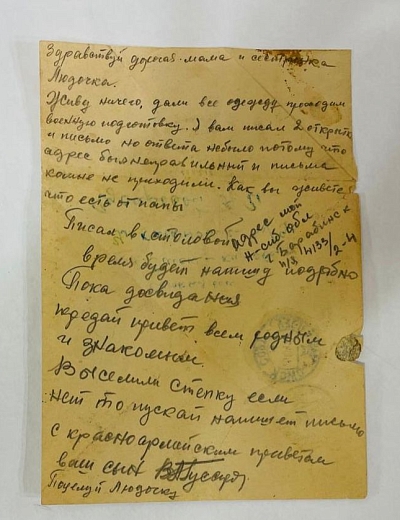 Здравствуй дорогая мама и сестрёнка
Людочка.
Живу ничего, дали все одежду проходим
военную подготовку. Я вам писал 2 открытк
и письмо но ответа небыло потому что
адрес был неправильный и письма
комне не приходили. Как вы живёте
что есть от папы
Писал в столовой
адрес мой
Н-сиб. обл
г. Барабинск
п/я 4/33/2-4
время будет напишу подробно
Пока досвидания
передай привет всем родным
и знакомым.
Выселили Степку если
нет то пускай напишет письмо
с красноармейским приветом
ваш сын
Поцелуй Людочку